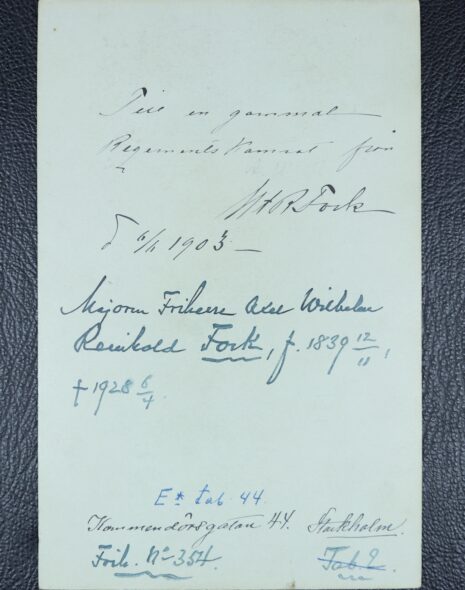 Till en gammal
Regements Kamrat från
W R Fock
d 6/1 1903 —
Majoren Friherre Axel Wilhelm
Reinhold Fock, f. 1839 12/11,
† 1928 6/4.
E* tab 44.
Kommendörsgatan 44. Stockholm.
Frih. No 354. Tab. 2